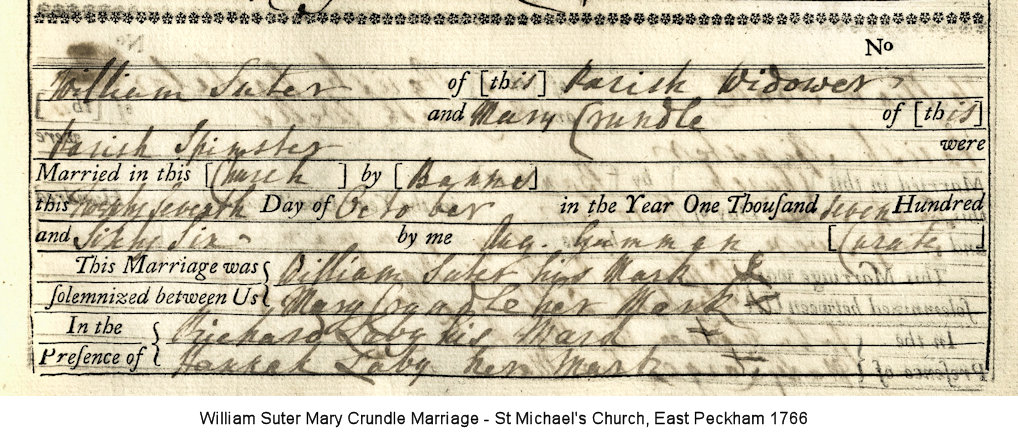 No
William Suter of [this] Parish Widower
and Mary Crundle of [this]
Parish Spinster were
Married in this [Church] by [Banns]
this Twenty seventh Day of October in the Year One Thouſand Seven Hundred
and Sixty Six by me Aug. Gamman [Curate]
This Marriage was { William Suter his Mark X
ſolemnized between Us { Mary Crundle her Mark X
In the { Richard Laby his Mark +
Preſence of { Hannah Laby her Mark +
William Suter Mary Crundle Marriage - St Michael's Church, East Peckham 1766